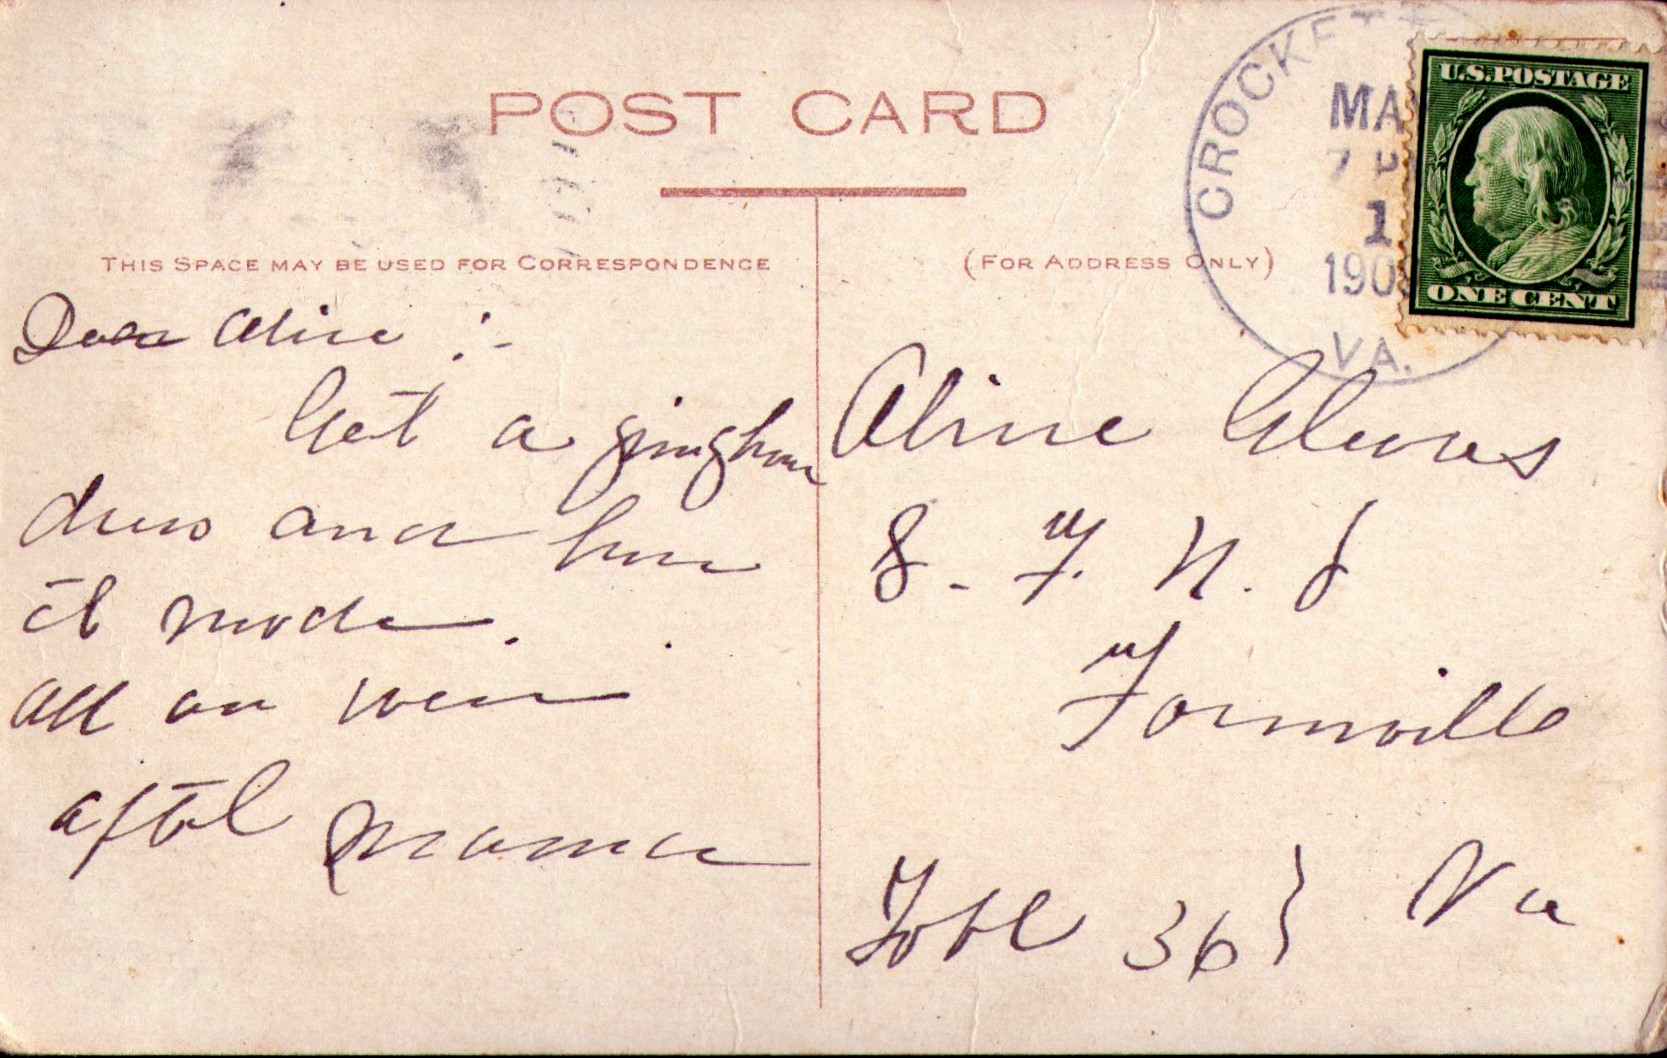 POST CARD
THIS SPACE MAY BE USED FOR CORRESPONDENCE
(FOR ADDRESS ONLY)
CROCKET
MA
7 P
1
190
VA.
U.S. POSTAGE
ONE CENT
Dear Aline :-
Get a gingham
dress and have
it made.
All are well
Mama
Aline
S. F. N. S
Farmville
Table 36} Va